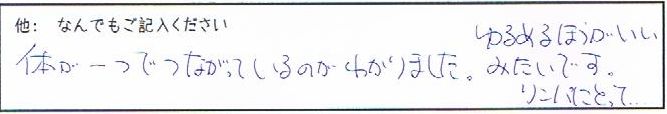 他： なんでもご記入ください
体が一つでつながっているのがわかりました。
ゆるめるほうがいい
みたいです。
リンパにとって…